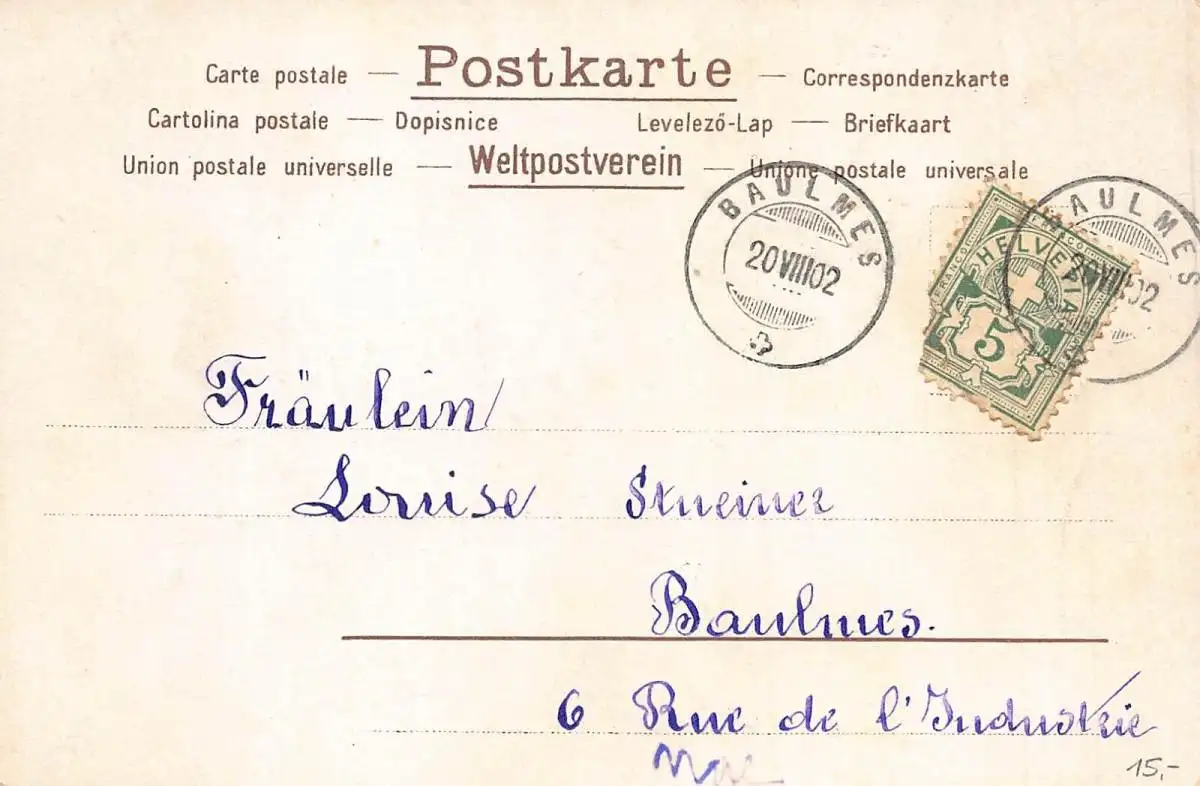 Carte postale — Postkarte — Correspondenzkarte
Cartolina postale — Dopisnice Levelező-Lap — Briefkaart
Union postale universelle — Weltpostverein — Unione postale universale
BAULMES
20 VIII 02
BAULMES
20 VIII 02
FRANCO
HELVETIA
5
Fräulein
Louise
Baulmes.
6 Rue de l'Industrie
15,-